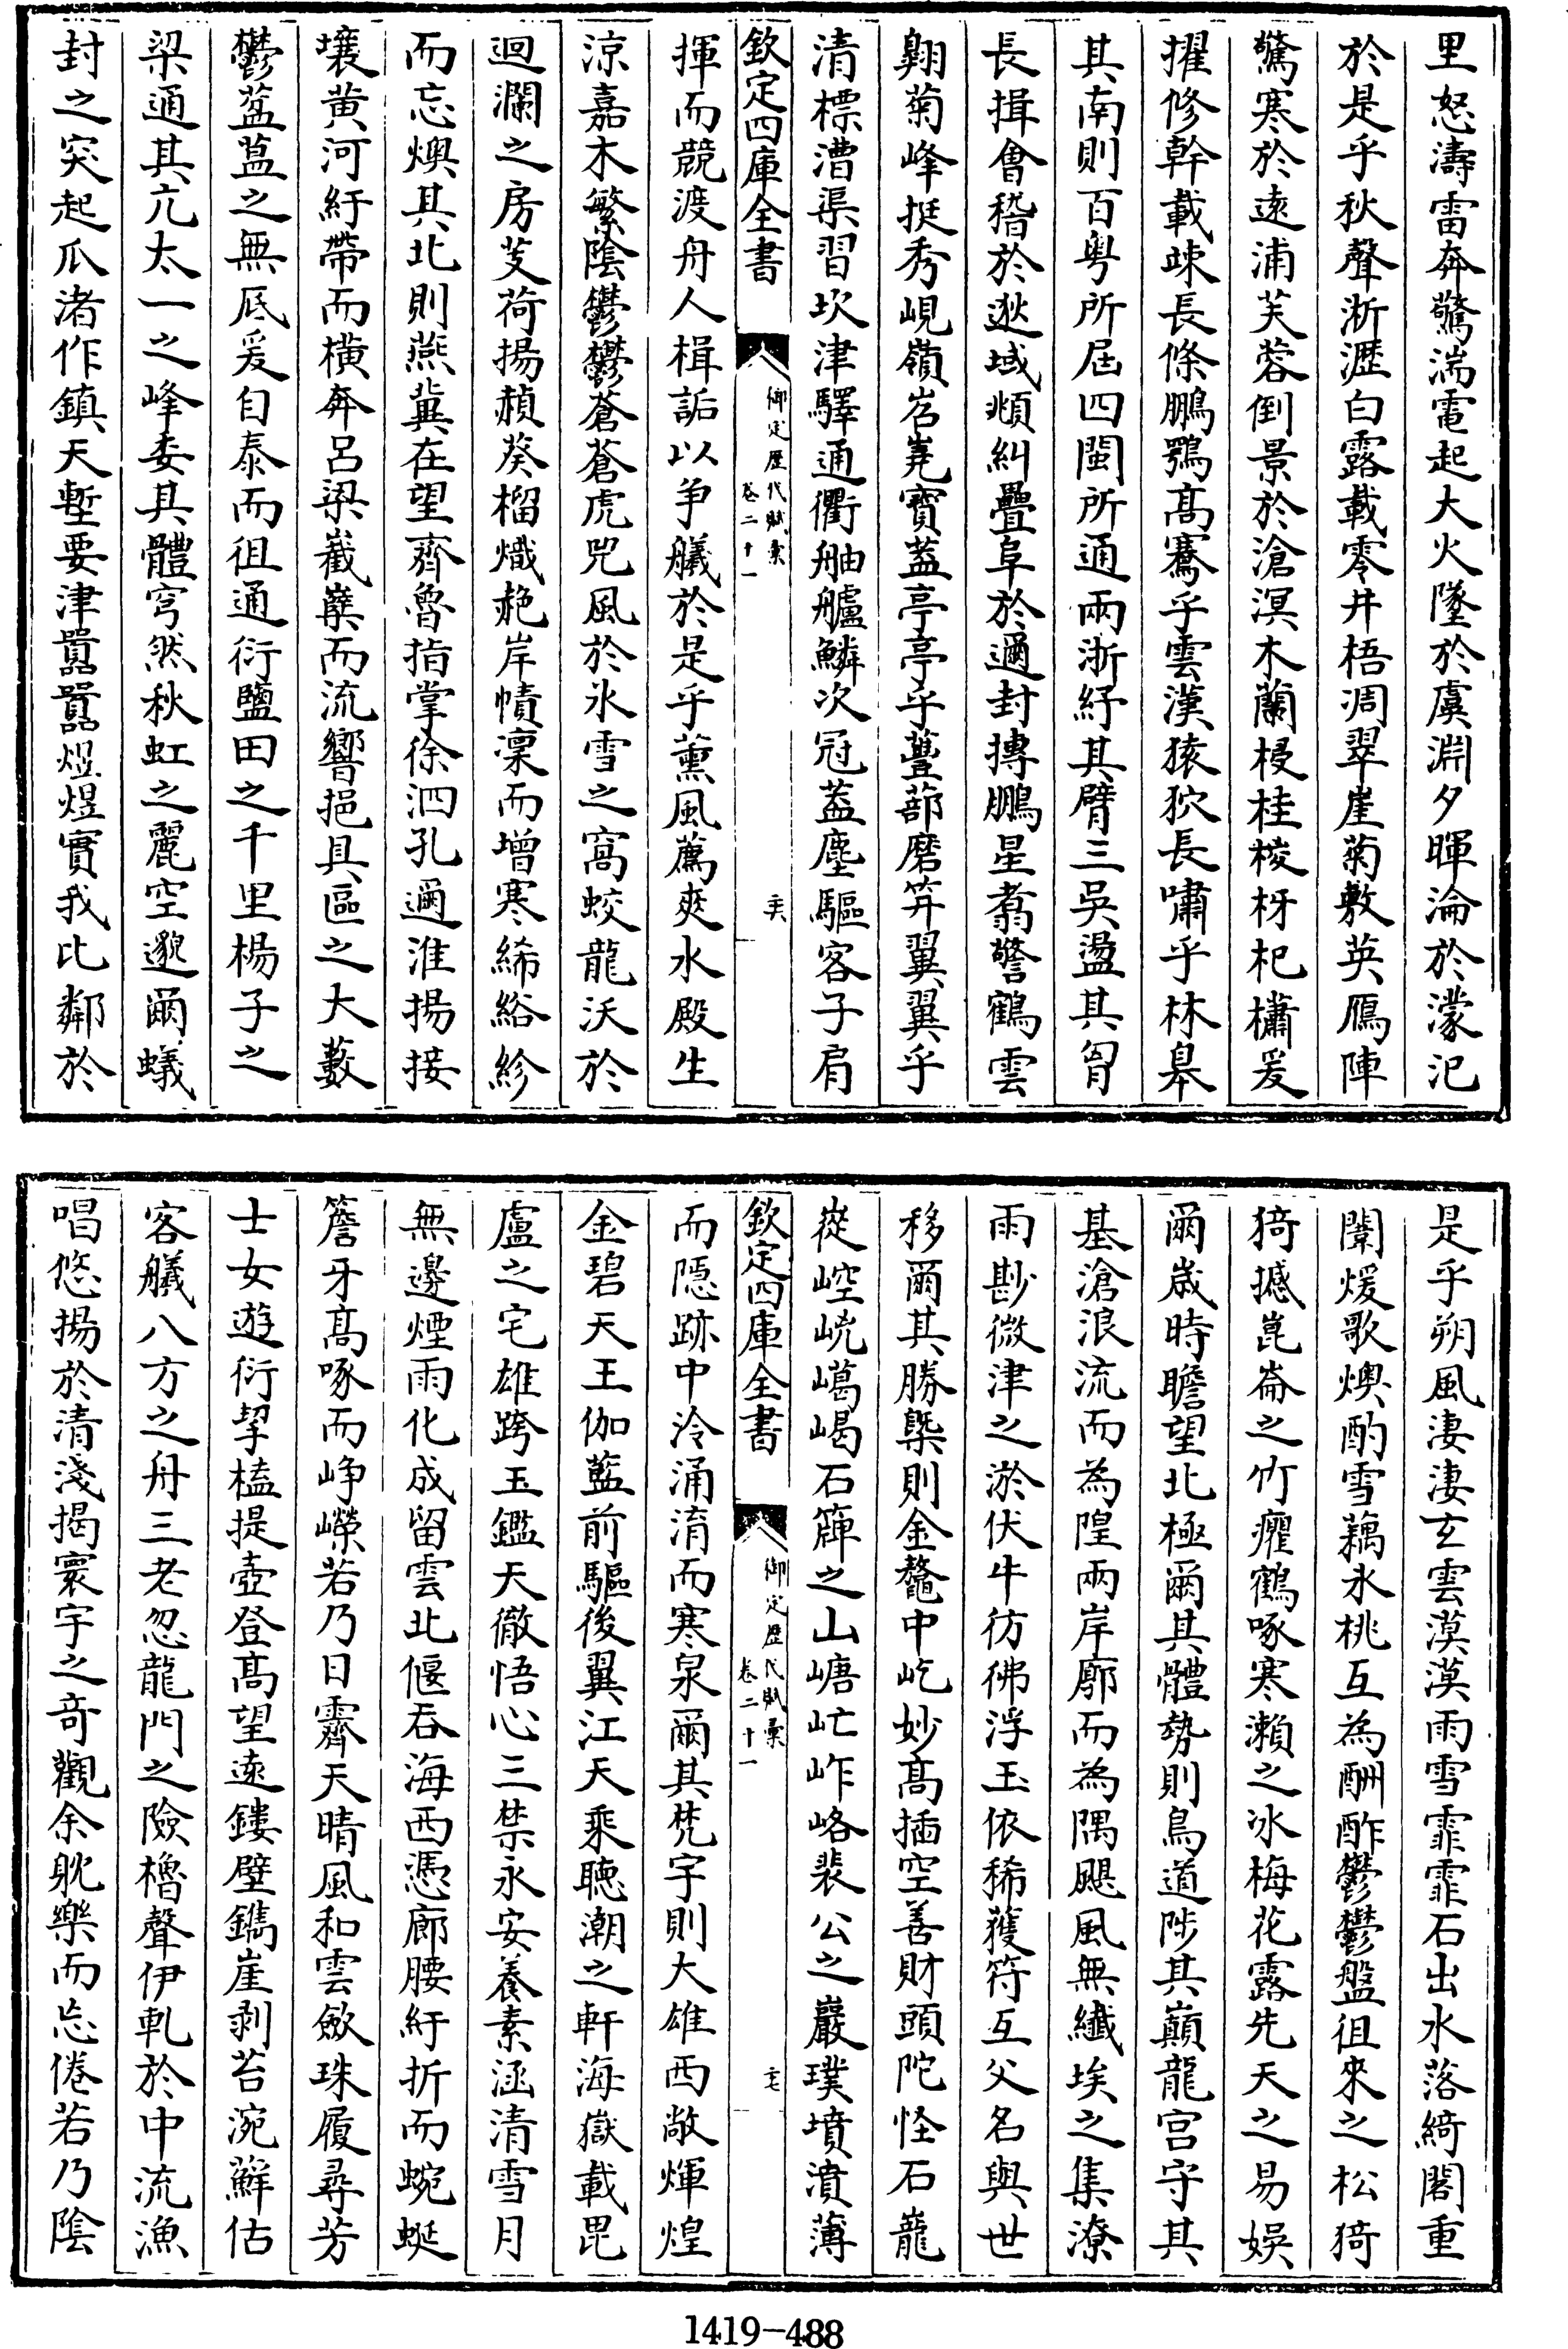 里怒濤雷奔驚湍電起大火墜於虞淵夕暉淪於濛汜
於是乎秋聲淅瀝白露載零井梧凋翠崖菊敷英鴈陣
驚寒於遠浦芙蓉倒景於滄溟木蘭梫桂棱枒杞櫹爰
擢修幹載疎長條鵬鶚髙騫乎雲漢猿狖長嘯乎林皋
其南則百粤所屆四閩所通兩浙紓其臂三吳盪其胷
長揖會稽於逖域頫糾疊阜於邇封摶鵬星翥警鶴雲
翺菊峰挺秀峴嶺岧嶤寳蓋亭亭乎薹蔀磨笄翼翼乎
清標漕渠習坎津驛通衢舳艫鱗次冠蓋塵驅客子肩
欽定四庫全書
御定歴代賦彙
卷二十一
天
揮而競渡舟人楫詬以争艤於是乎薰風薦爽水殿生
涼嘉木繁陰鬱鬱蒼蒼虎兕風於氷雪之窩蛟龍沃於
迴瀾之房芰荷揚頳葵榴熾赩岸幘凜而增寒絺綌紾
而忘燠其北則燕冀在望齊魯指掌徐泗孔邇淮揚接
壤黄河紆帶而横奔吕梁嶻嶭而流響挹具區之大藪
鬱葐蒀之無厎爰自泰而徂通衍鹽田之千里楊子之
梁通其亢太一之峰委其體穹然秋虹之麗空邈爾蟻
封之突起瓜渚作鎮天塹要津嚚嚚熤煜實我比鄰於
是乎朔風淒淒玄雲漠漠雨雪霏霏石出水落綺閣重
闈煖歌燠酌雪藕氷桃互為酬酢鬱鬱盤徂來之松猗
猗撼崑崙之竹癯鶴啄寒瀨之冰梅花露先天之易娛
爾歲時瞻望北極爾其體勢則鳥道陟其巔龍宫守其
基滄浪流而為隍兩岸廓而為隅颶風無纎埃之集潦
雨尠微津之淤伏牛彷彿浮玉依稀獲符互父名與世
移爾其勝槩則金鼇中屹妙髙插空善財頭陀怪石巃
嵸崆峣嶱嵑石簰之山嵣㟐岞峈裴公之巖璞墳濆薄
欽定四庫全書
御定歴代賦彙
卷二十一
而隠跡中泠涌淯而寒泉爾其梵宇則大雄西敞煇煌
金碧天王伽藍前驅後翼江天乘聴潮之軒海嶽載毘
盧之宅雄跨玉鑑天徹悟心三禁永安養素涵清雪月
無邊煙雨化成留雲北偃吞海西憑廊腰紆折而蜿蜒
簷牙髙啄而峥嶸若乃日霽天晴風和雲歛珠履尋芳
士女遊衍挈榼提壺登髙望遠鏤壁鐫崖剥苔涴蘚估
客艤八方之舟三老忽龍門之險櫓聲伊軋於中流漁
唱悠揚於清淺揭寰宇之奇觀余躭樂而忘倦若乃陰
1419-488